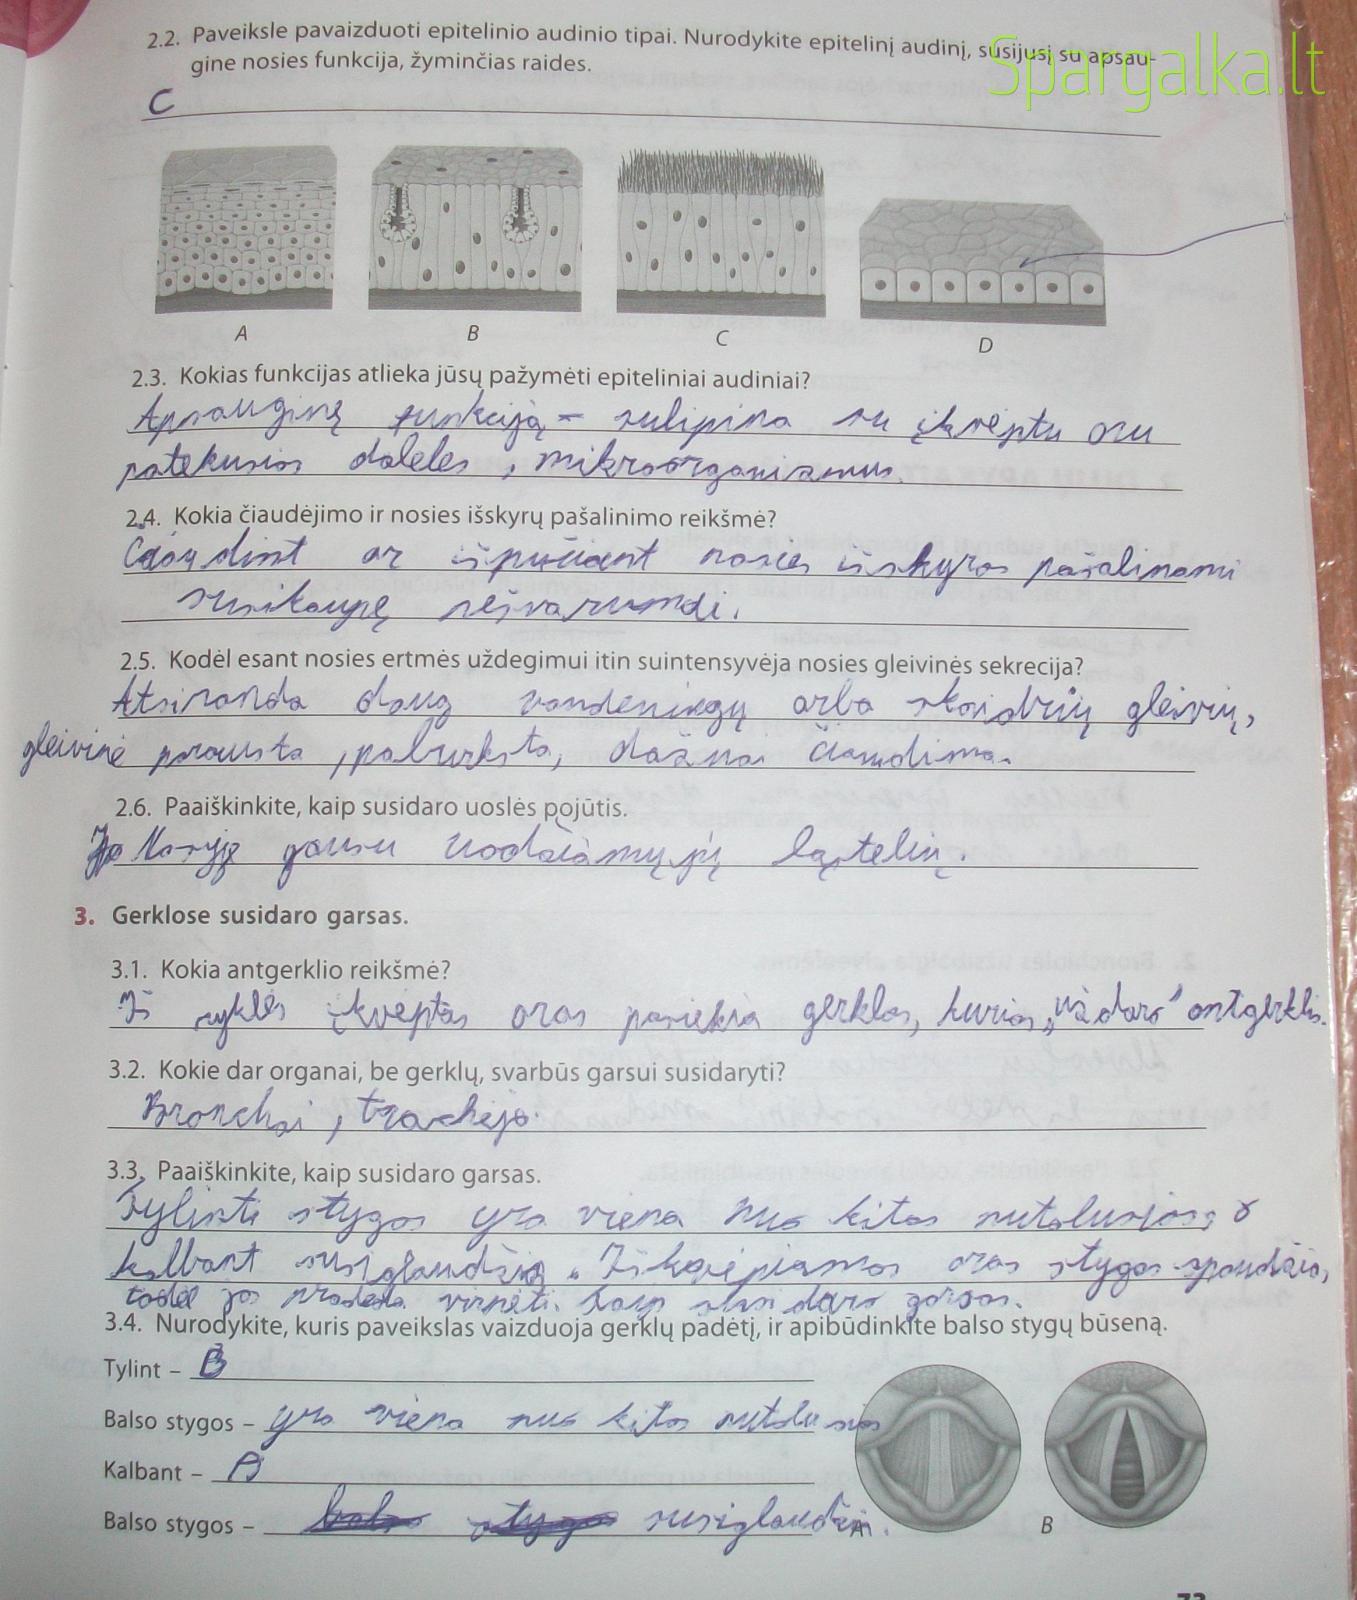 Spargalka.lt
2.2. Paveiksle pavaizduoti epitelinio audinio tipai. Nurodykite epitelinį audinį, susijusį su apsau-
gine nosies funkcija, žyminčias raides.
C
A B C D
2.3. Kokias funkcijas atlieka jūsų pažymėti epiteliniai audiniai?
Apsauginę funkciją – sulipina su įkvėptu oru
patekusias daleles, mikroorganizmus.
2.4. Kokia čiaudėjimo ir nosies išskyrų pašalinimo reikšmė?
Čiaudint ar išpučiant nosies išskyras pašalinami
susikaupę nešvarumai.
2.5. Kodėl esant nosies ertmės uždegimui itin suintensyvėja nosies gleivinės sekrecija?
Atsiranda daug vandeningų arba skaidrių gleivių,
gleivinė parausta, paburksta, dažnai čiaudima.
2.6. Paaiškinkite, kaip susidaro uoslės pojūtis.
Nosyje gausu uodžiamųjų ląstelių.
3. Gerklose susidaro garsas.
3.1. Kokia antgerklio reikšmė?
Iš ryklės įkvėptas oras pasiekia gerklas, kurias „uždaro" antgerklis.
3.2. Kokie dar organai, be gerklų, svarbūs garsui susidaryti?
Bronchai, trachėja.
3.3. Paaiškinkite, kaip susidaro garsas.
Tylint stygos yra viena nuo kitos nutolusios, o
kalbant susiglaudžia. Iškvėpiamas oras stygas spaudžia,
todėl jos pradeda virpėti. Taip susidaro garsas.
3.4. Nurodykite, kuris paveikslas vaizduoja gerklų padėtį, ir apibūdinkite balso stygų būseną.
Tylint – B
Balso stygos – yra viena nuo kitos nutolusios
Kalbant – A
Balso stygos – balso stygos susiglaudžia.
A B
73